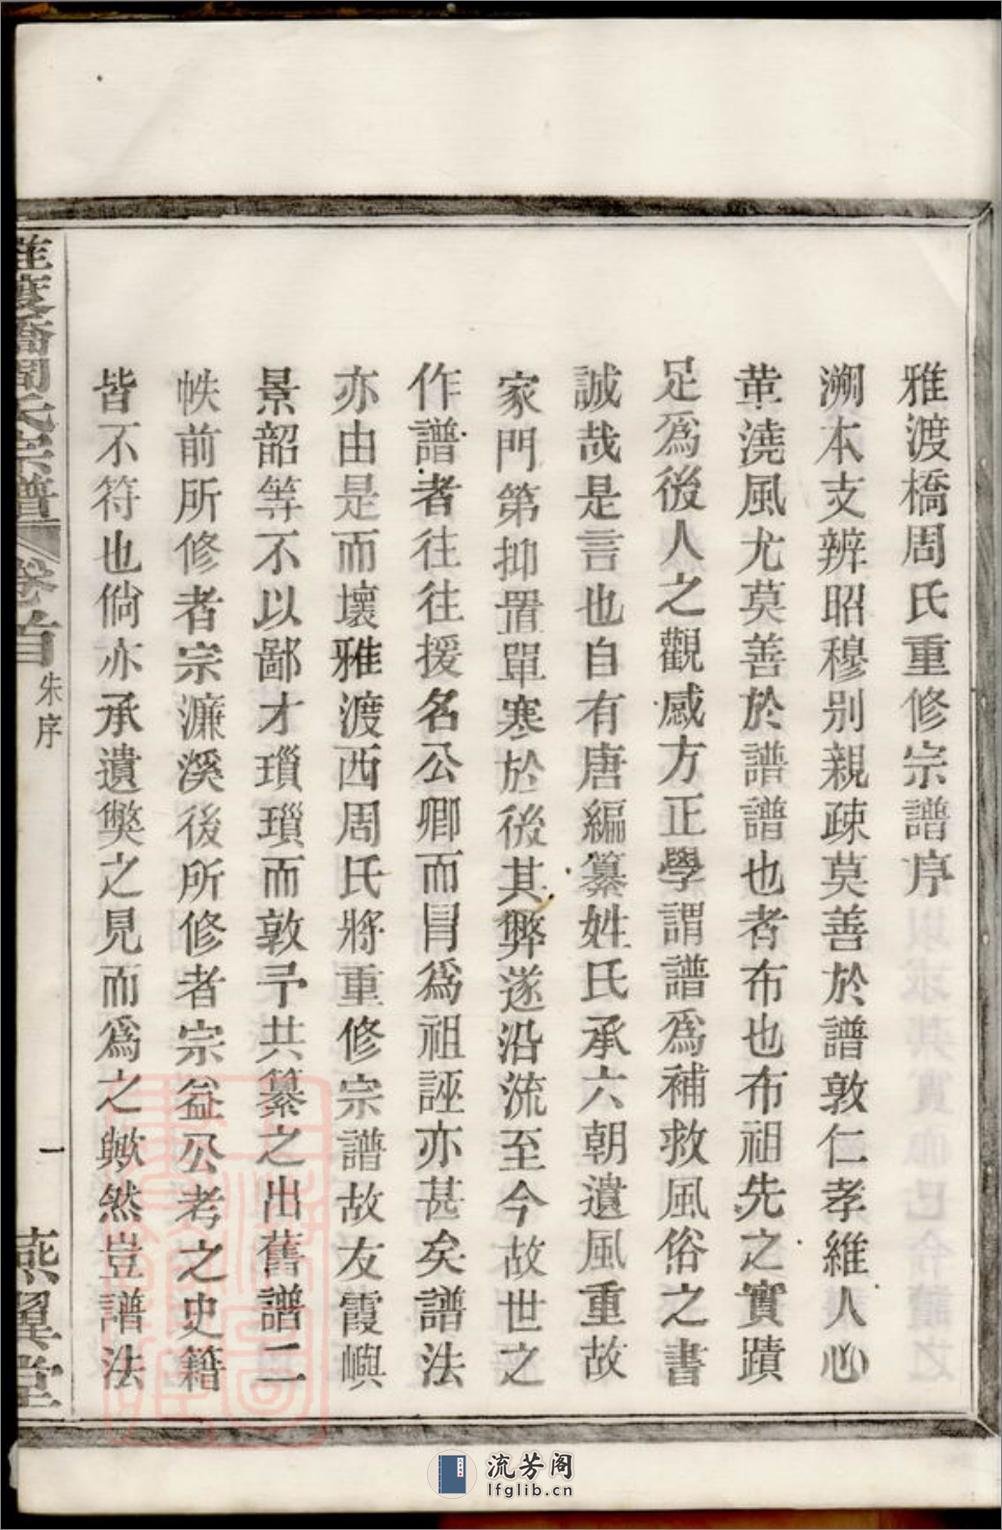 雅渡橋周氏重修宗譜序
溯本支辨昭穆別親疎莫善於譜敦仁孝維人心
革澆風尤莫善於譜譜也者布也布祖先之實蹟
足爲後人之觀感方正學謂譜爲補救風俗之書
誠哉是言也自有唐編纂姓氏承六朝遺風重故
家門第抑置單寒於後其弊遂沿流至今故世之
作譜者往往援名公卿而冐爲祖誣亦甚矣譜法
亦由是而壞雅渡西周氏將重修宗譜故友霞嶼
景韶等不以鄙才瑣瑣而敦予共纂之出舊譜二
帙前所修者宗濂溪後所修者宗益公考之史籍
皆不符也倘亦承遺獘之見而爲之歟然豈譜法
雅渡橋周氏宗譜 卷首 朱序 一 燕翼堂
流芳阁
lfglib.cn